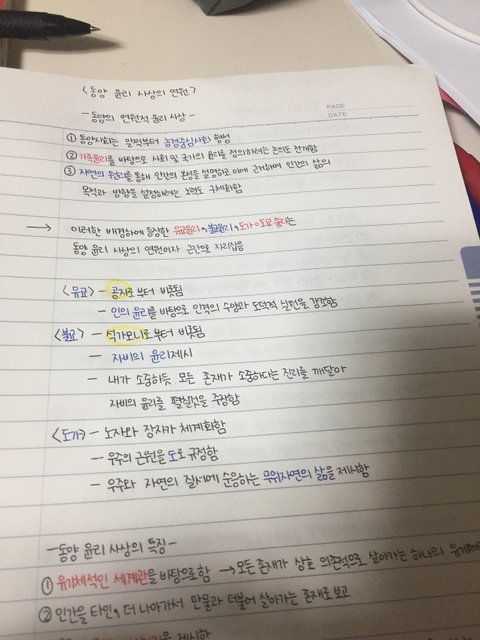 <동양 윤리 사상의 연원>
PAGE
DATE
-동양의 연원적 윤리 사상-
① 동양사회는 일찍부터 농경중심사회 형성
② 가족윤리를 바탕으로 사회 및 국가의 윤리를 정의하려는 논의도 전개함
③ 자연의 원리를 통해 인간의 본성을 설명하고 이에 근거하여 인간의 삶의
목적과 방향을 설정하려는 노력도 구체화함
→ 이러한 배경하에 등장한 유교윤리, 불교윤리, 도가·도교 윤리는
동양 윤리 사상의 연원이자 근간으로 자리잡음
<유교> - 공자로부터 비롯됨
- 인의 윤리를 바탕으로 인격의 수양과 도덕적 실천을 강조함
<불교> - 석가모니로부터 비롯됨
- 자비의 윤리제시
- 내가 소중하듯 모든 존재가 소중하다는 진리를 깨달아
자비의 윤리를 펼칠것을 주장함
<도가> - 노자와 장자가 체계화함
- 우주의 근원을 도로 규정함
- 우주와 자연의 질서에 순응하는 무위자연의 삶을 제시함
-동양 윤리 사상의 특징-
① 유기체적인 세계관을 바탕으로함 → 모든 존재가 상호 의존적으로 살아가는 하나의
② 인간을 타인, 더 나아가서 만물과 더불어 살아가는 존재로 보고
제시함